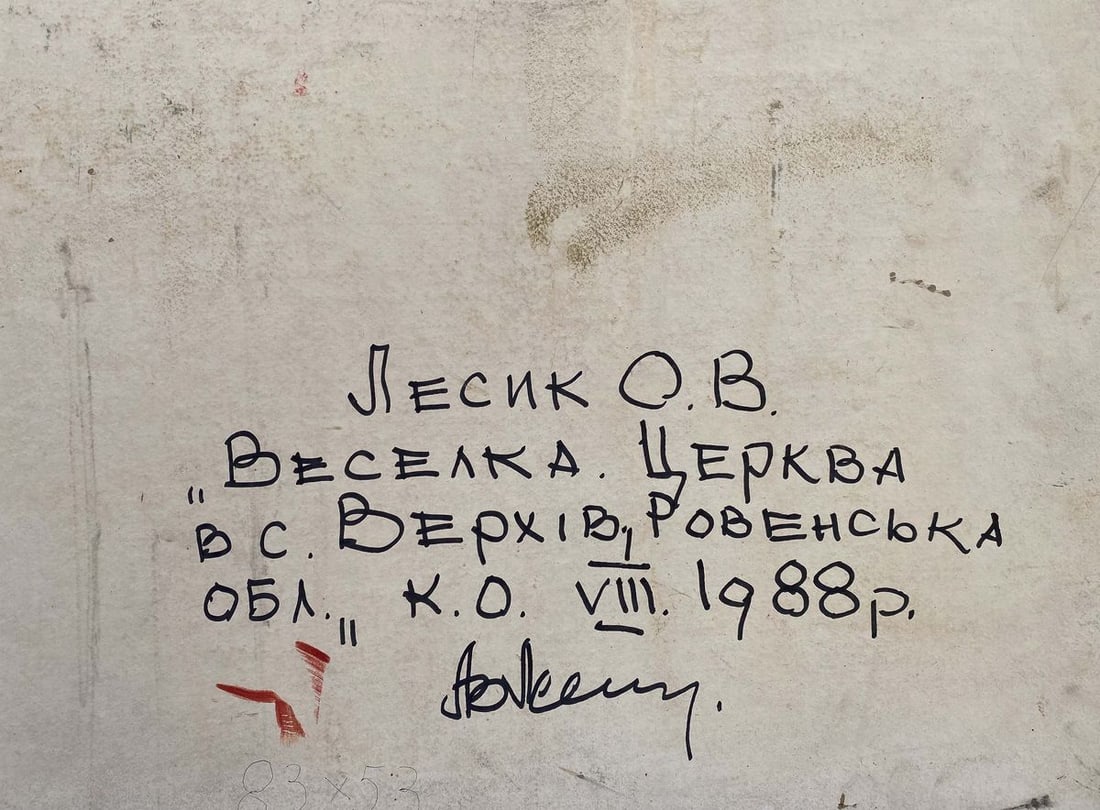 Лесик О.В.
„Веселка. Церква
в с. Верхів, Ровенська
обл.„ к.о. VIII. 1988р.
83x53